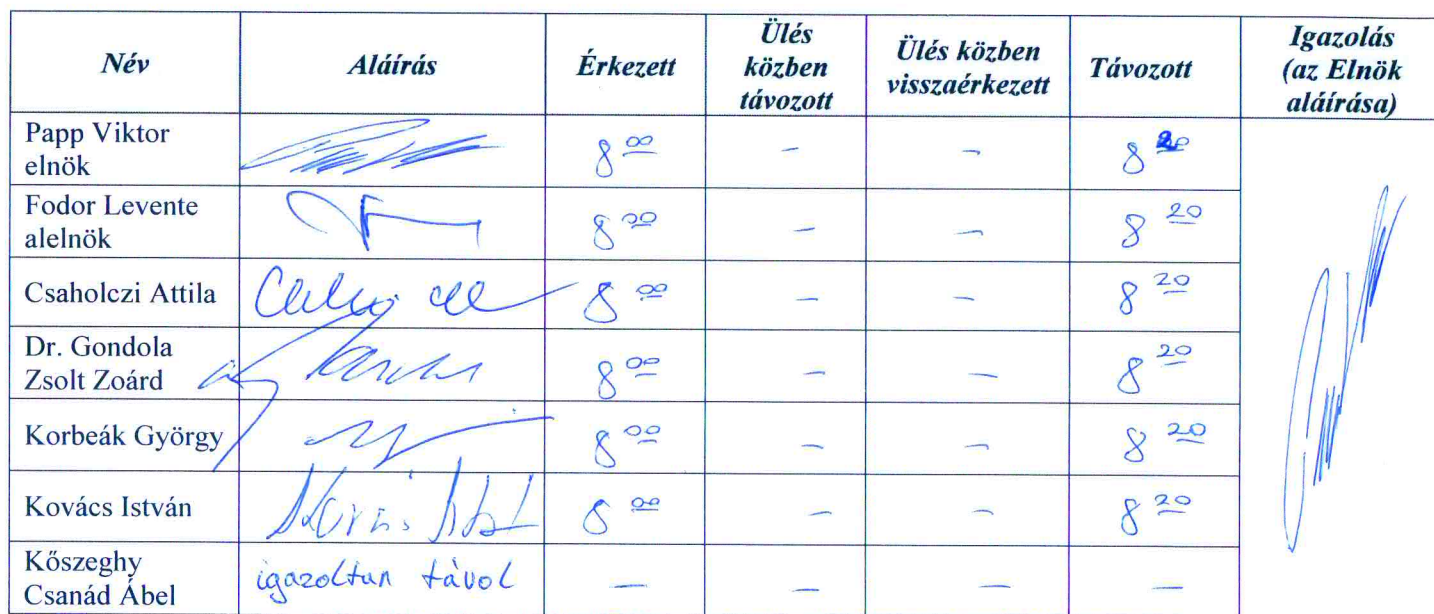 Név Aláírás Érkezett Ülés közben távozott Ülés közben visszaérkezett Távozott Igazolás (az Elnök aláírása)
Papp Viktor elnök 8 00 - - 8 20
Fodor Levente alelnök 8 00 - - 8 20
Csaholczi Attila 8 00 - - 8 20
Dr. Gondola Zsolt Zoárd 8 00 - - 8 20
Korbeák György 8 00 - - 8 20
Kovács István 8 00 - - 8 20
Kőszeghy Csanád Ábel igazoltan távol - - - -